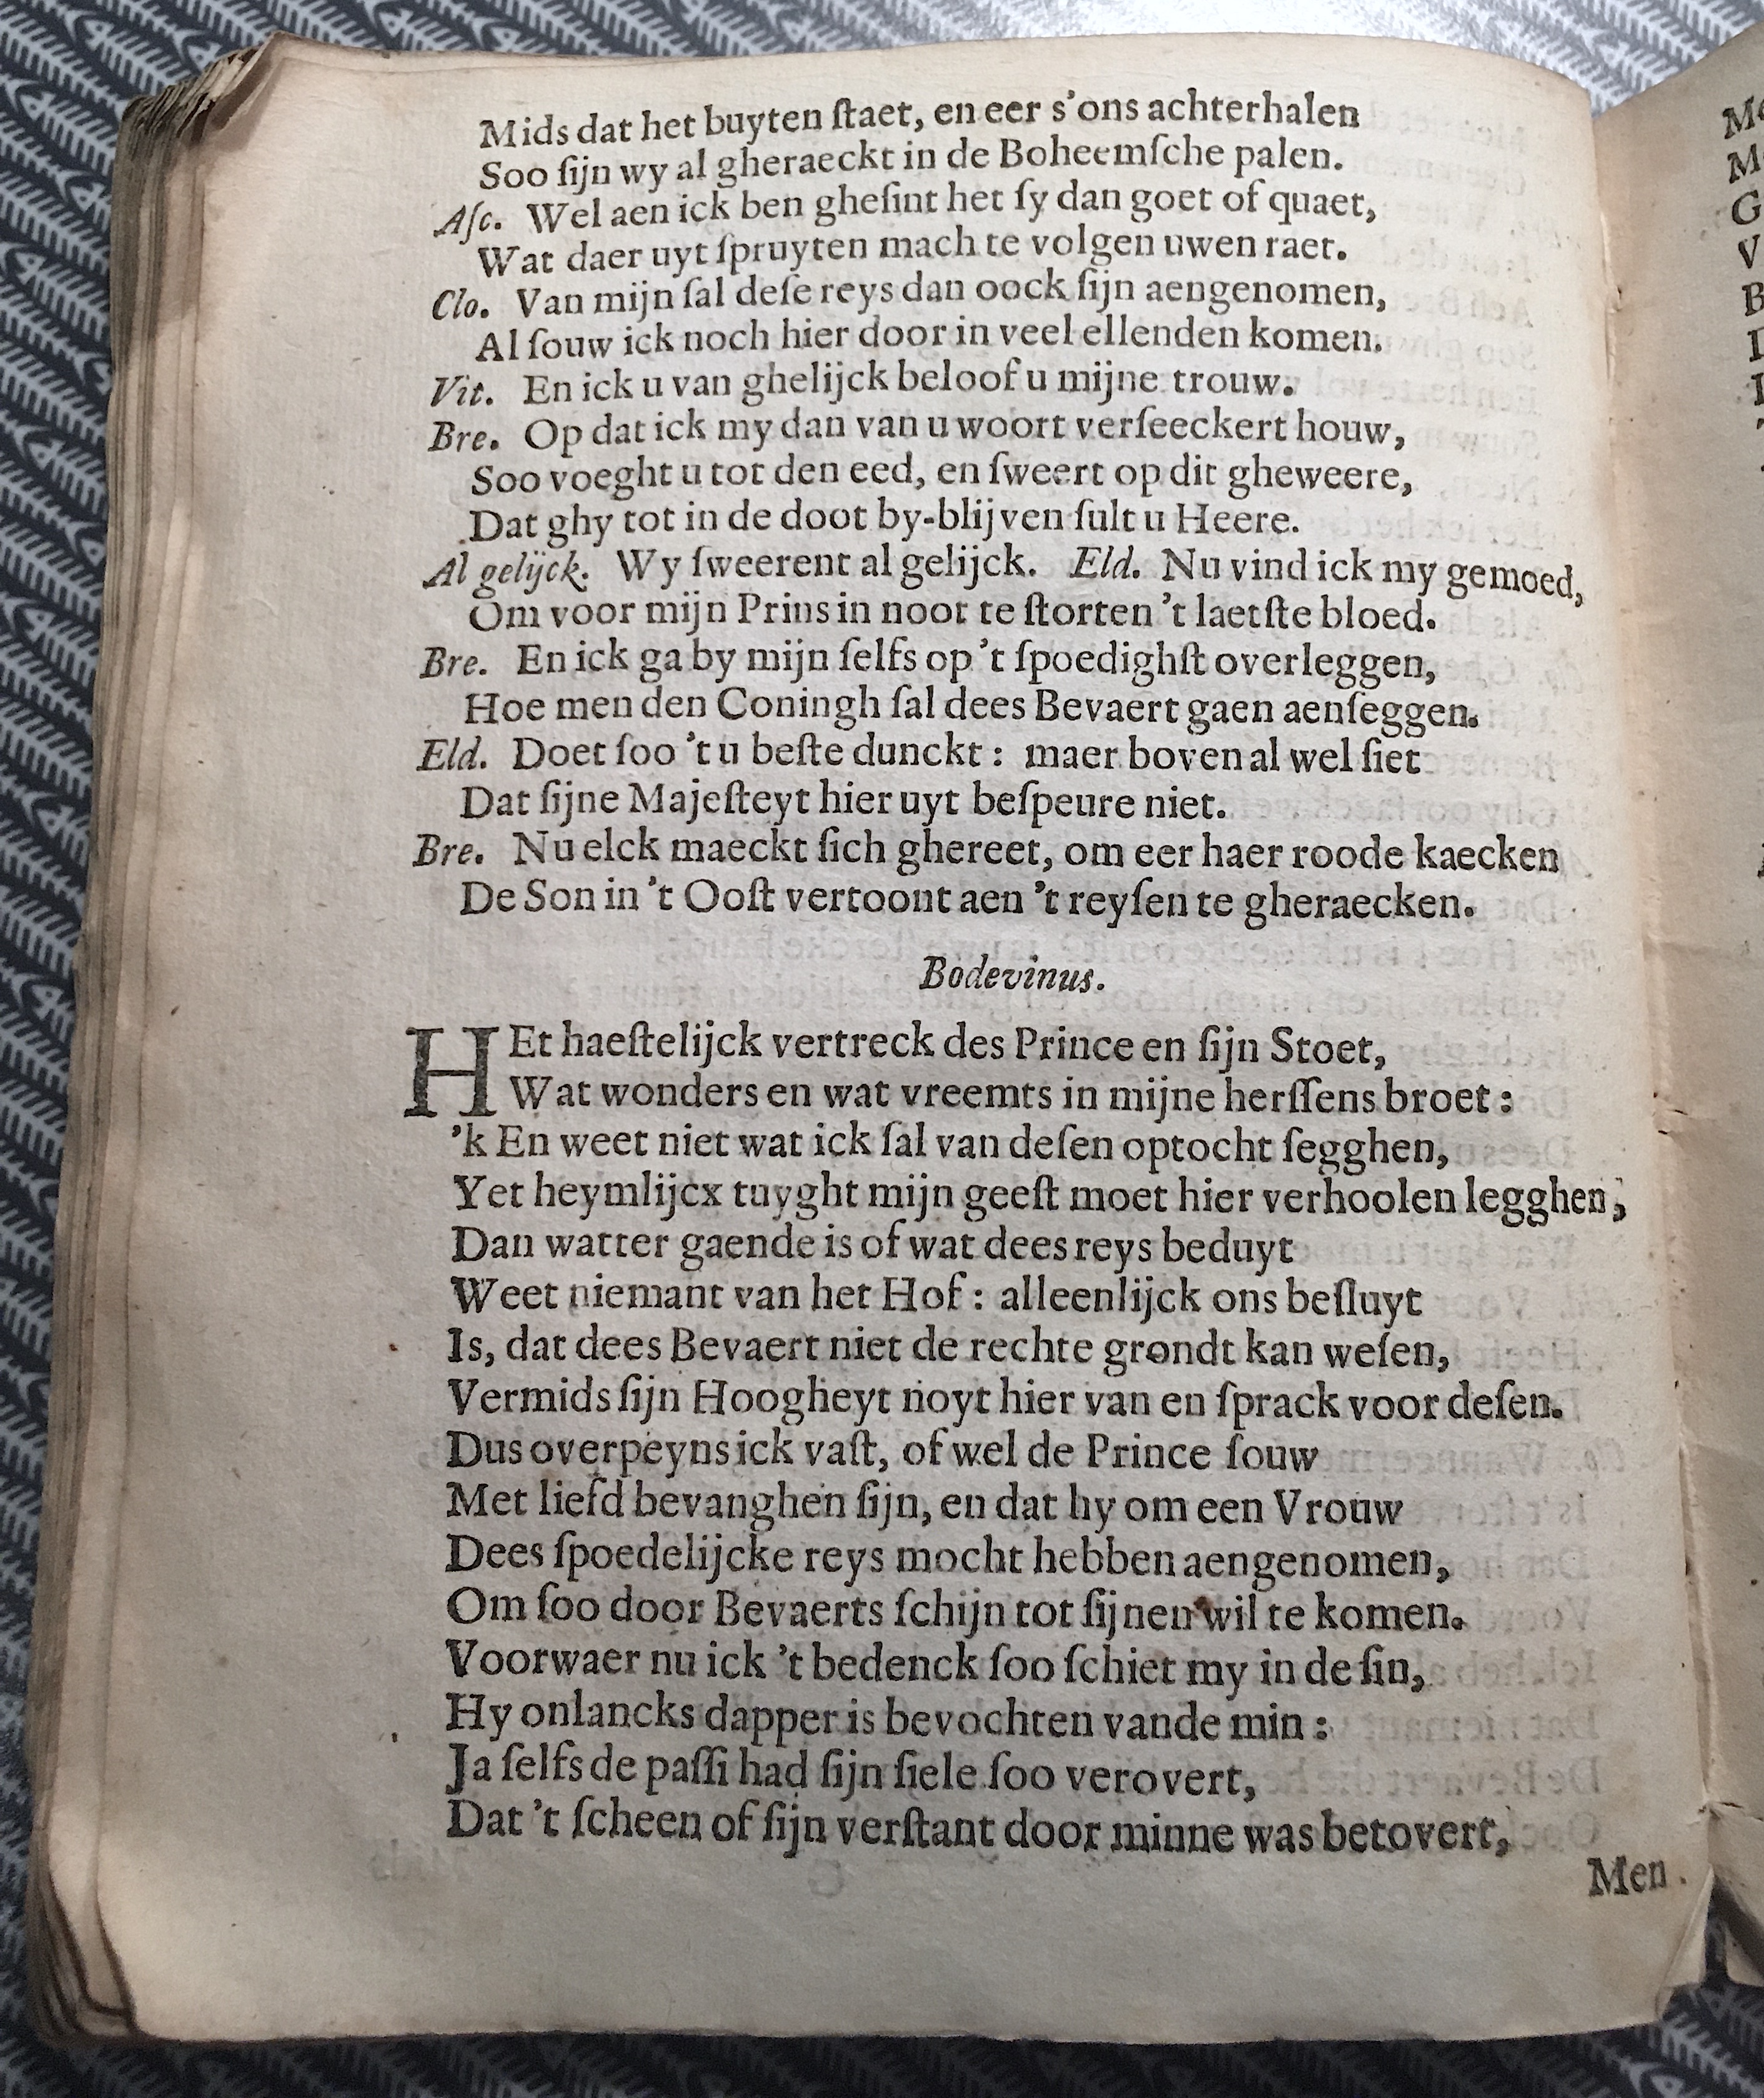 Mids dat het buyten ſtaet, en eer s'ons achterhalen
Soo ſijn wy al gheraeckt in de Boheemſche palen.
Aſc. Wel aen ick ben gheſint het ſy dan goet of quaet,
Wat daer uyt ſpruyten mach te volgen uwen raet.
Clo. Van mijn ſal deſe reys dan oock ſijn aengenomen,
Al ſouw ick noch hier door in veel ellenden komen.
Vit. En ick u van ghelijck beloof u mijne trouw.
Bre. Op dat ick my dan van u woort verſeeckert houw,
Soo voeght u tot den eed, en ſweert op dit gheweere,
Dat ghy tot in de doot by-blijven ſult u Heere.
Al gelijck. Wy ſweerent al gelijck. Eld. Nu vind ick my gemoed,
Om voor mijn Prins in noot te ſtorten 't laetſte bloed.
Bre. En ick ga by mijn ſelfs op 't ſpoedighſt overleggen,
Hoe men den Coningh ſal dees Bevaert gaen aenſeggen.
Eld. Doet ſoo 't u beſte dunckt: maer boven al wel ſiet
Dat ſijne Majeſteyt hier uyt beſpeure niet.
Bre. Nu elck maeckt ſich ghereet, om eer haer roode kaecken
De Son in 't Ooſt vertoont aen 't reyſen te gheraecken.
Bodevinus.
HEt haeſtelijck vertreck des Prince en ſijn Stoet,
Wat wonders en wat vreemts in mijne herſſens broet:
'k En weet niet wat ick ſal van deſen optocht ſegghen,
Yet heymlijcx tuyght mijn geeſt moet hier verhoolen legghen;
Dan watter gaende is of wat dees reys beduyt
Weet niemant van het Hof: alleenlijck ons beſluyt
Is, dat dees Bevaert niet de rechte grondt kan weſen,
Vermids ſijn Hoogheyt noyt hier van en ſprack voor deſen.
Dus overpeyns ick vaſt, of wel de Prince ſouw
Met liefd bevanghen ſijn, en dat hy om een Vrouw
Dees ſpoedelijcke reys mocht hebben aengenomen,
Om ſoo door Bevaerts ſchijn tot ſijnen wil te komen.
Voorwaer nu ick 't bedenck ſoo ſchiet my in de ſin,
Hy onlancks dapper is bevochten vande min:
Ja ſelfs de paſſi had ſijn ſiele ſoo verovert,
Dat 't ſcheen of ſijn verſtant door minne was betovert,
Men